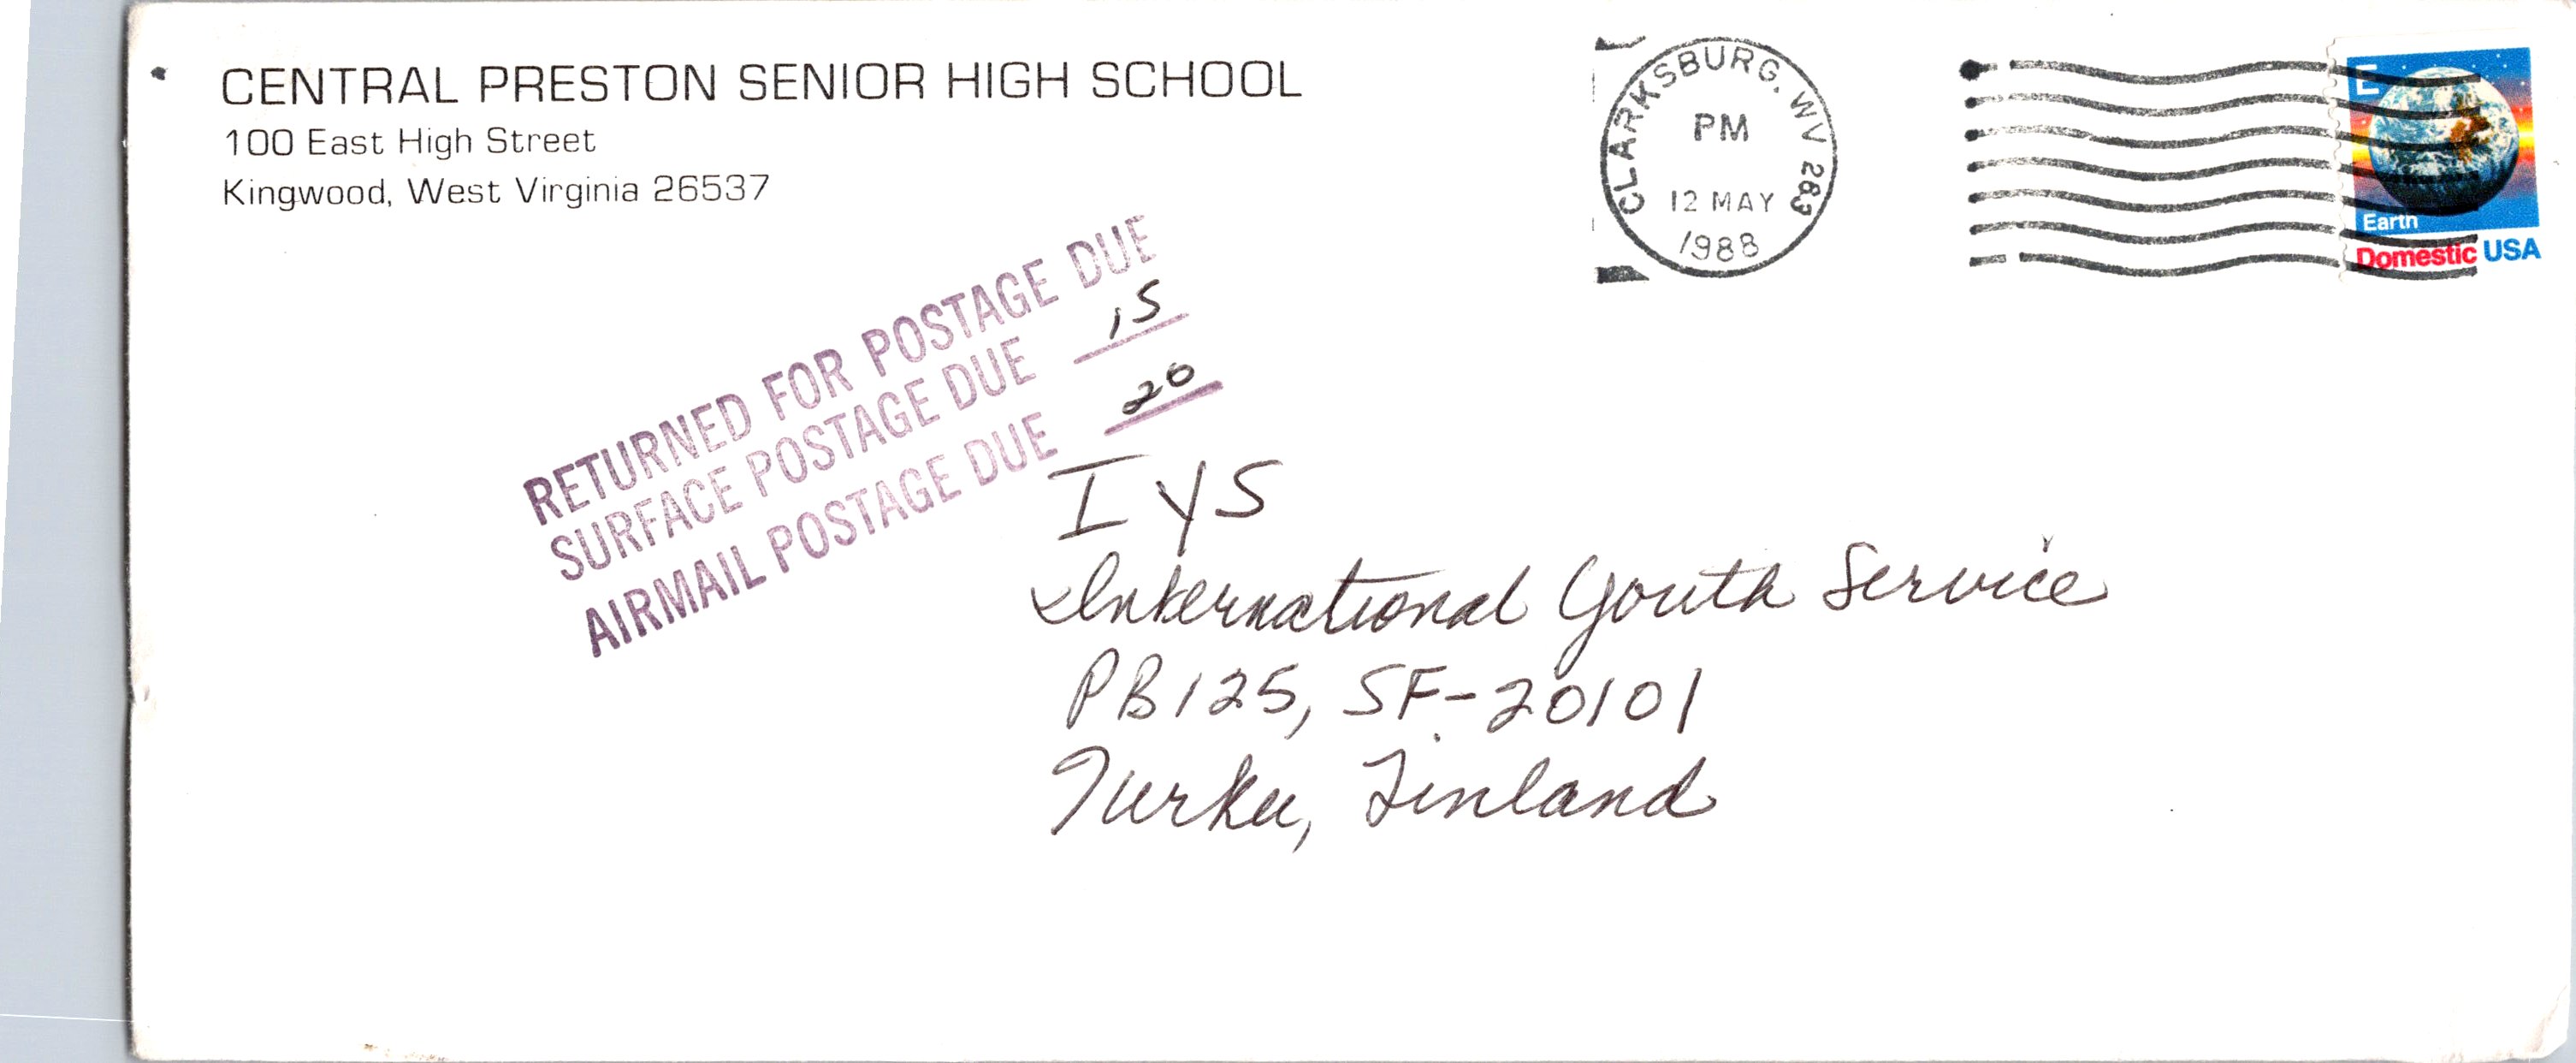 CENTRAL PRESTON SENIOR HIGH SCHOOL
100 East High Street
Kingwood, West Virginia 26537
CLARKSBURG, WV 263
PM
12 MAY
1988
E
Earth
Domestic USA
RETURNED FOR POSTAGE DUE
SURFACE POSTAGE DUE 15
AIRMAIL POSTAGE DUE 20
IYS
International Youth Service
PB125, SF-20101
Turku, Finland